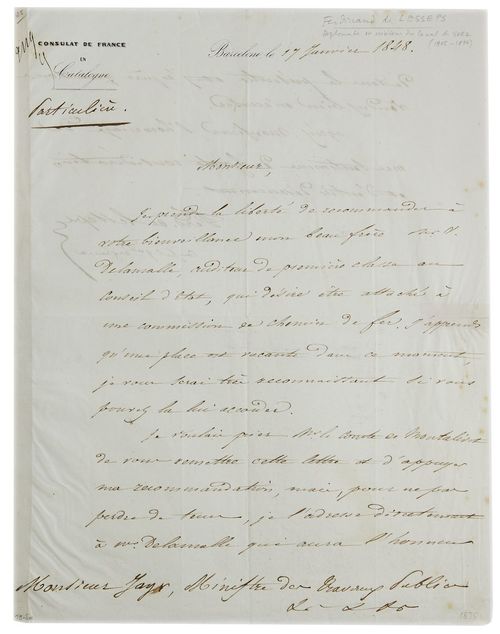 Ferdinand de LESSEPS
diplomate
Canal de Suez
(1805-1894)
CONSULAT DE FRANCE
EN
Catalogne
Barcelone le 17 Janvier 1848.
Particulière.
Monsieur,
Je prends la liberté de recommander à
votre bienveillance mon beau frère Mr V.
Delamalle, auditeur de première classe au
Conseil d'Etat, qui désire être attaché à
une commission de chemin de fer. J'apprends
qu'une place est vacante dans ce moment,
je vous serai très reconnaissant si vous
pouvez la lui accorder.
Je voulais prier Mr le Comte de Montalivet
de vous remettre cette lettre et d'appuyer
ma recommandation, mais, pour ne pas
perdre de tems, je l'adresse directement
à Mr Delamalle qui aura l'honneur
Monsieur Jayr, Ministre des Travaux Publics